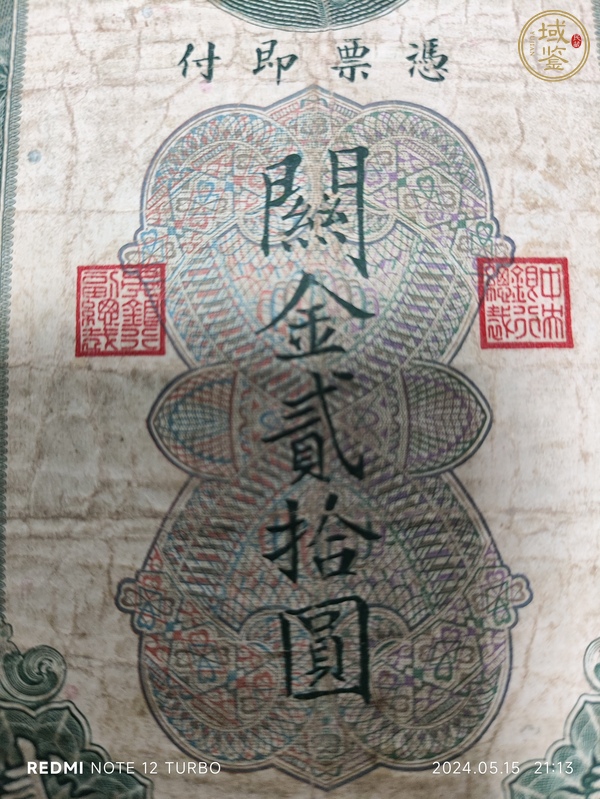 憑票即付
關金貳拾圓
中央銀行總裁
域鉴
REDMI NOTE 12 TURBO
2024.05.15 21:13